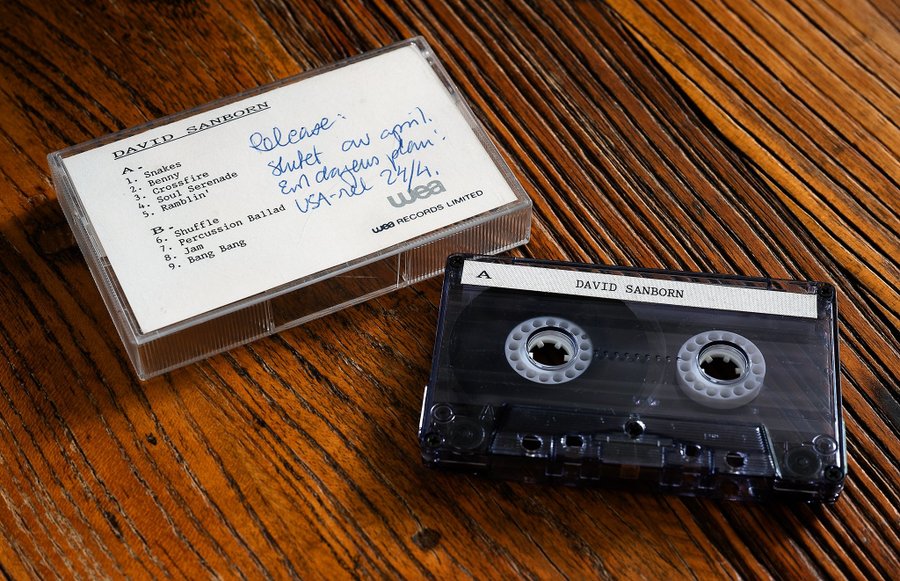 DAVID SANBORN
A-
1. Snakes
2. Benny
3. Crossfire
4. Soul Serenade
5. Ramblin'
B-
6. Shuffle
7. Percussion Ballad
8. Jam
9. Bang Bang
Release:
slutet av april.
Enl dagens plan:
USA-rel 24/4.
wea
wea RECORDS LIMITED
A
DAVID SANBORN